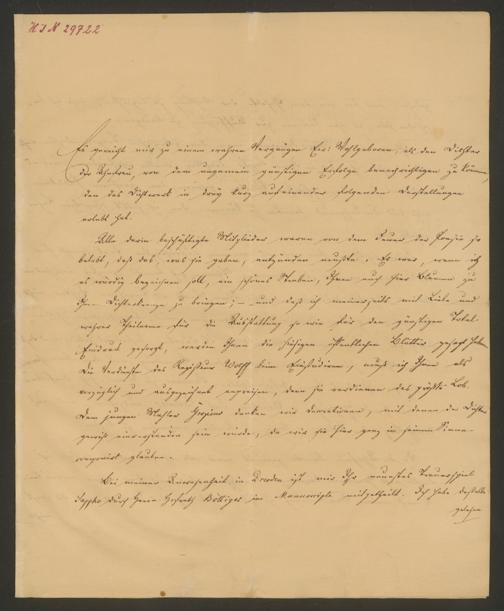 H I N 29722
Es gereicht mir zu einem wahren Vergnügen Ew: Wohlgeboren, als den Dichter
der Ahnfrau, von dem ungemein günstigen Erfolge benachrichtigen zu können,
den das Dichtwerk in drey kurz aufeinander folgenden Darstellungen
erlebt hat.
Alle darin beschäftigte Mitglieder waren von dem Feuer der Poesie so
belebt, daß das, was sie gaben, entzünden mußte. Es war, wenn ich
es würdig bezeichnen soll, ein schönes Streben, Ihnen auch hier Blumen zu
Ihrem Dichterkranze zu bringen; – und daß ich meinerseits mit Liebe und
wahrer Theilname für die Ausstattung so wie für den günstigen Total-
Eindruck gesorgt, werden Ihnen die hiesigen öffentlichen Blätter gesagt haben.
Die Verdienste des Regisseur Wolff beim Einstudiren, muß ich Ihnen als
vorzüglich und ausgezeichnet anpreisen, denn sie verdienen das größte Lob.
Dem jungen Maler Gropius danken wir Decorationen, mit denen der Dichter
gewiß einverstanden sein würde, da wir sie hier ganz in seinem Sinne
glauben.
Bei meiner Anwesenheit in Dresden ist mir Ihr neuestes Trauerspiel
Sappho durch Herrn Hofrath Böttiger im Manuscripte mitgetheilt. Ich habe dasselbe
gelesen